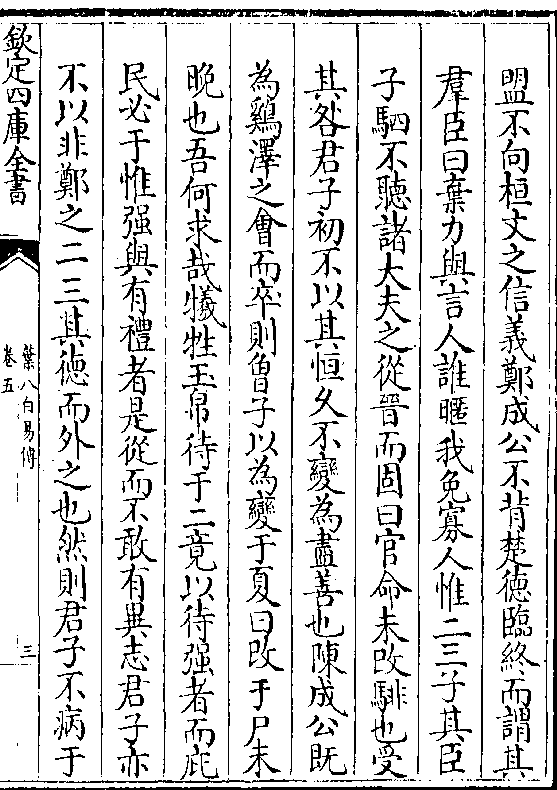 盟不向桓文之信義鄭成公不背楚德臨終而謂其
羣臣曰棄力與言人誰暱我免寡人惟二三子其臣
子駟不聽諸大夫之從晉而固曰官命未改騑也受
其咎君子初不以其恒久不變為盡善也陳成公既
為鷄澤之會而卒則曾子以為變于夏曰改于尸未
晚也吾何求哉犧牲玉帛待于二竟以待强者而庇
民必于惟强與有禮者是從而不敢有異志君子亦
不以非鄭之二三其德而外之也然則君子不病于
欽定四庫全書
葉八白易傳
卷五
三